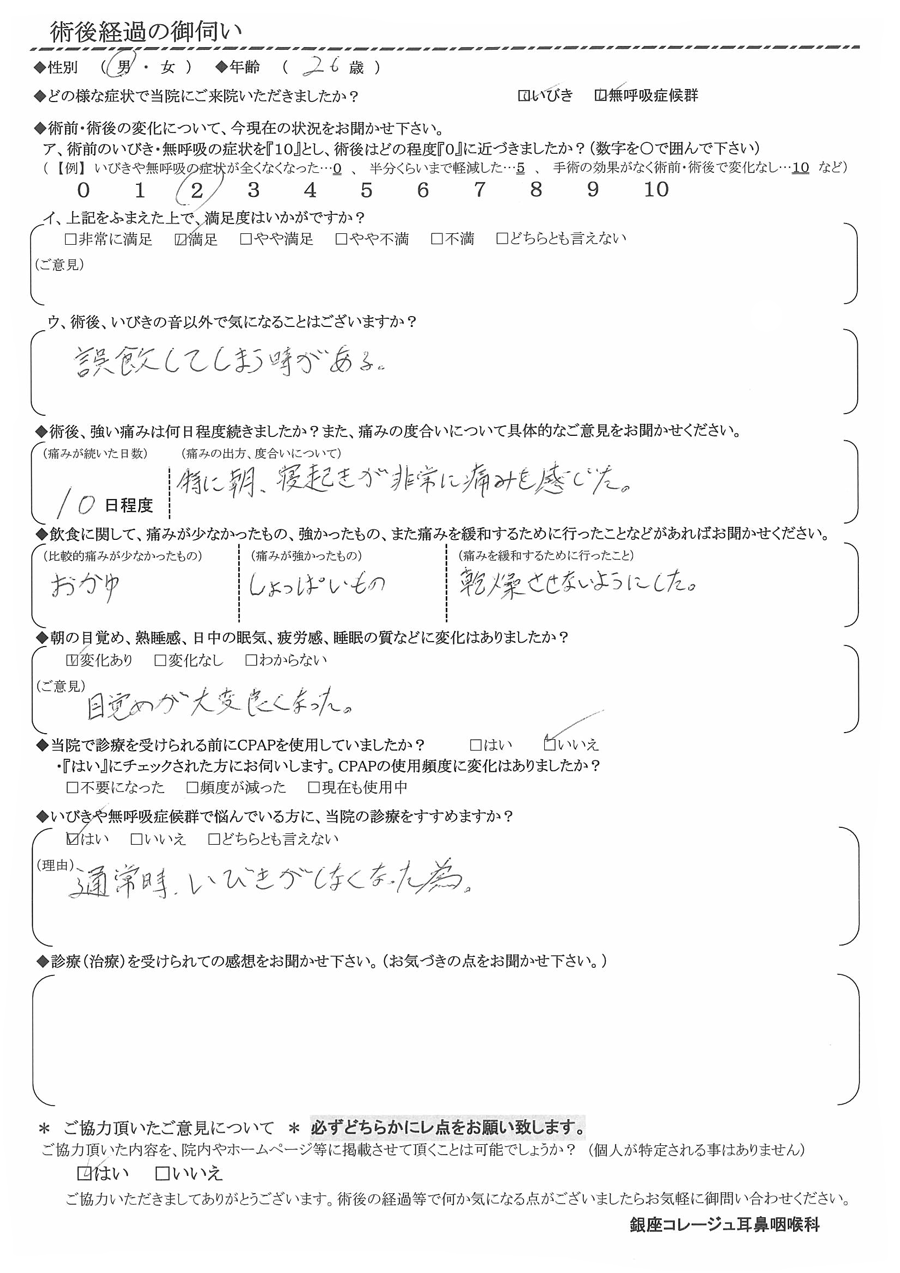 術後経過の御伺い
◆性別 ( 男 ・ 女 ) ◆年齢 ( 26 歳 )
◆どの様な症状で当院にご来院いただきましたか? ☑いびき ☑無呼吸症候群
◆術前・術後の変化について、今現在の状況をお聞かせ下さい。
ア、術前のいびき・無呼吸の症状を『10』とし、術後はどの程度『0』に近づきましたか?(数字を○で囲んで下さい)
(【例】 いびきや無呼吸の症状が全くなくなった…0 、 半分くらいまで軽減した…5 、 手術の効果がなく術前・術後で変化なし…10 など)
0 1 2 3 4 5 6 7 8 9 10
イ、上記をふまえた上で、満足度はいかがですか?
□非常に満足 ☑満足 □やや満足 □やや不満 □不満 □どちらとも言えない
(ご意見)
ウ、術後、いびきの音以外で気になることはございますか?
誤飲してしまう時がある。
◆術後、強い痛みは何日程度続きましたか?また、痛みの度合いについて具体的なご意見をお聞かせください。
(痛みが続いた日数) (痛みの出方、度合いについて)
10 日程度 特に朝、寝起きが非常に痛みを感じた。
◆飲食に関して、痛みが少なかったもの、強かったもの、また痛みを緩和するために行ったことなどがあればお聞かせください。
(比較的痛みが少なかったもの) (痛みが強かったもの) (痛みを緩和するために行ったこと)
おかゆ しょっぱいもの 乾燥させないようにした。
◆朝の目覚め、熟睡感、日中の眠気、疲労感、睡眠の質などに変化はありましたか?
☑変化あり □変化なし □わからない
(ご意見)
目覚めが大変良くなった。
◆当院で診療を受けられる前にCPAPを使用していましたか? □はい ☑いいえ
・『はい』にチェックされた方にお伺いします。CPAPの使用頻度に変化はありましたか?
□不要になった □頻度が減った □現在も使用中
◆いびきや無呼吸症候群で悩んでいる方に、当院の診療をすすめますか?
☑はい □いいえ □どちらとも言えない
(理由)
通常時、いびきがしなくなった為。
◆診療(治療)を受けられての感想をお聞かせ下さい。(お気づきの点をお聞かせ下さい。)
* ご協力頂いたご意見について * 必ずどちらかにレ点をお願い致します。
ご協力頂いた内容を、院内やホームページ等に掲載させて頂くことは可能でしょうか? (個人が特定される事はありません)
☑はい □いいえ
ご協力いただきましてありがとうございます。術後の経過等で何か気になる点がございましたらお気軽に御問い合わせください。
銀座コレージュ耳鼻咽喉科